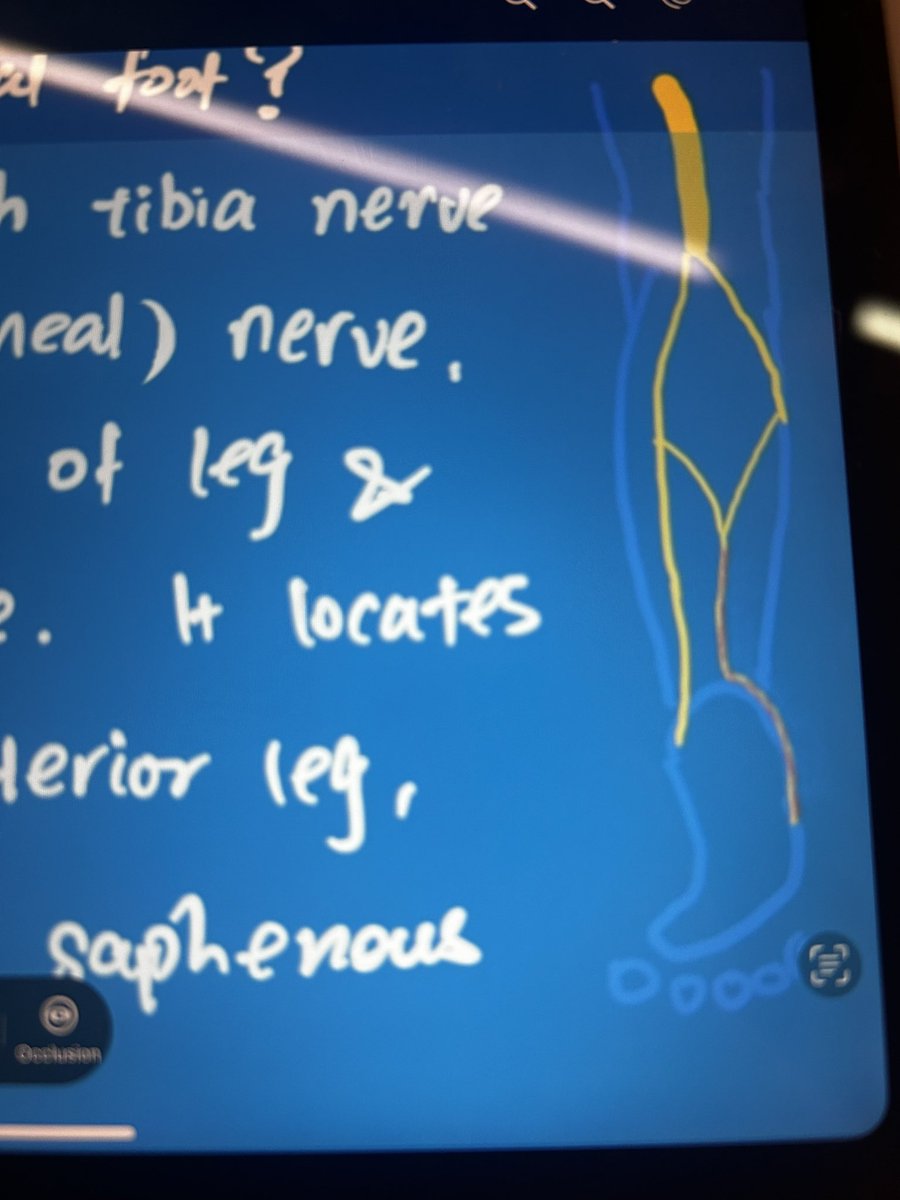 foot?
tibia nerve
neal) nerve.
of leg &
e. It locates
terior leg,
saphenous
Occlusion